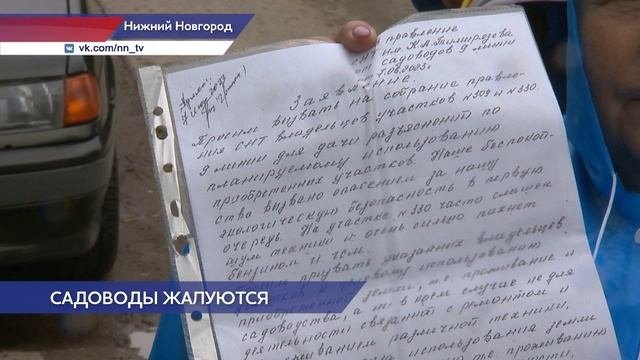 Нижний Новгород
vk.com/nn_tv
правление
им. К.А. Тимирязева
садоводов 9 линии
Заявление.
Просим вызвать на собрание правле-
ния СНТ владельцев участков №309 и №330
9 линии для дачи разъяснений по
планируемому использованию
приобретенных участков. Наше беспокой-
ство вызвано опасением за нашу
экологическую безопасность в первую
очередь. На участке №330 часто слышен
шум техники и очень сильно пахнет
бензином и
призвать указанных владельцев
целевому использованию
приобретенной земли, т.е. проживание и
садоводства, а ни в коем случае не для
деятельности связанной с ремонтом и
различной техники,
использования земли
САДОВОДЫ ЖАЛУЮТСЯ